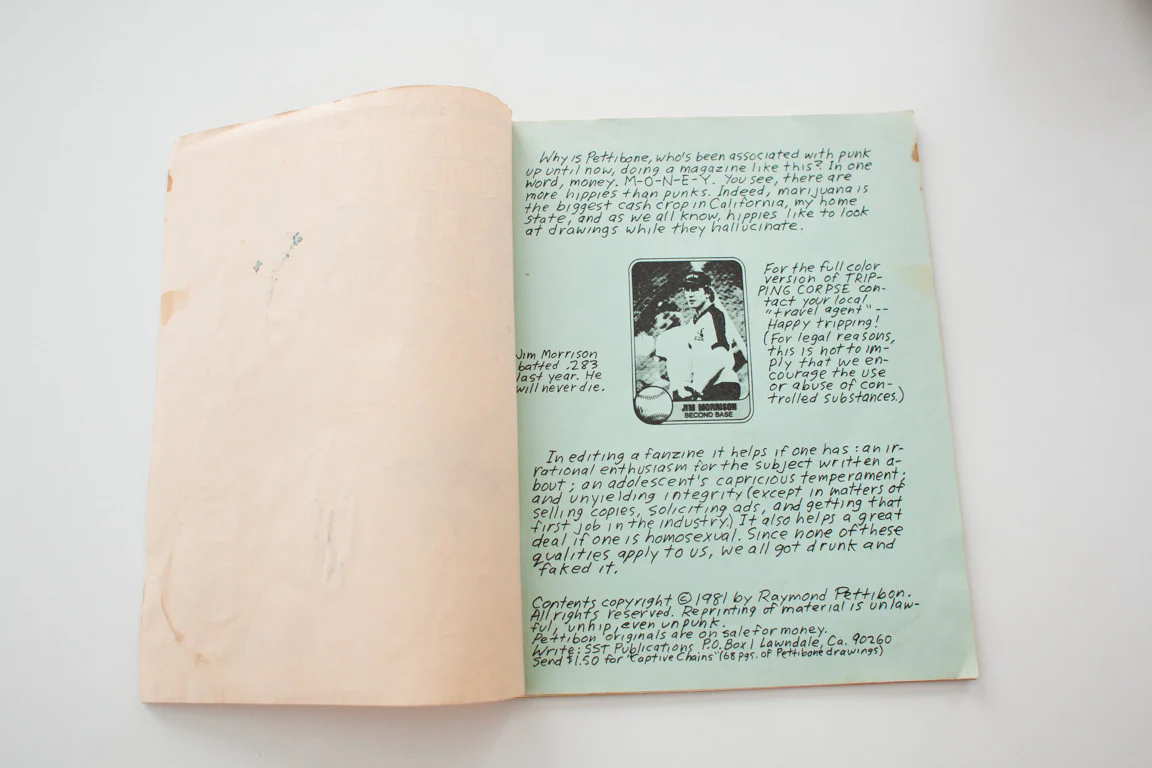 Why is Pettibone, who's been associated with punk
up until now, doing a magazine like this? In one
word, money. M-O-N-E-Y. You see, there are
more hippies than punks. Indeed, marijuana is
the biggest cash crop in California, my home
state, and as we all know, hippies like to look
at drawings while they hallucinate.
Jim Morrison
batted .283
last year. He
will never die.
JIM MORRISON
SECOND BASE
For the full color
version of TRIP-
PING CORPSE con-
tact your local
"travel agent" --
Happy tripping!
(For legal reasons,
this is not to im-
ply that we en-
courage the use
or abuse of con-
trolled substances.)
In editing a fanzine it helps if one has: an ir-
rational enthusiasm for the subject written a-
bout; an adolescent's capricious temperament;
and unyielding integrity (except in matters of
selling copies, soliciting ads, and getting that
first job in the industry.) It also helps a great
deal if one is homosexual. Since none of these
qualities apply to us, we all got drunk and
faked it.
Contents copyright © 1981 by Raymond Pettibon.
All rights reserved. Reprinting of material is unlaw-
ful, unhip, even unpunk.
Pettibon originals are on sale for money.
Write: SST Publications P.O. Box 1 Lawndale, Ca. 90260
Send $1.50 for "Captive Chains" (68 pgs. of Pettibone drawings)